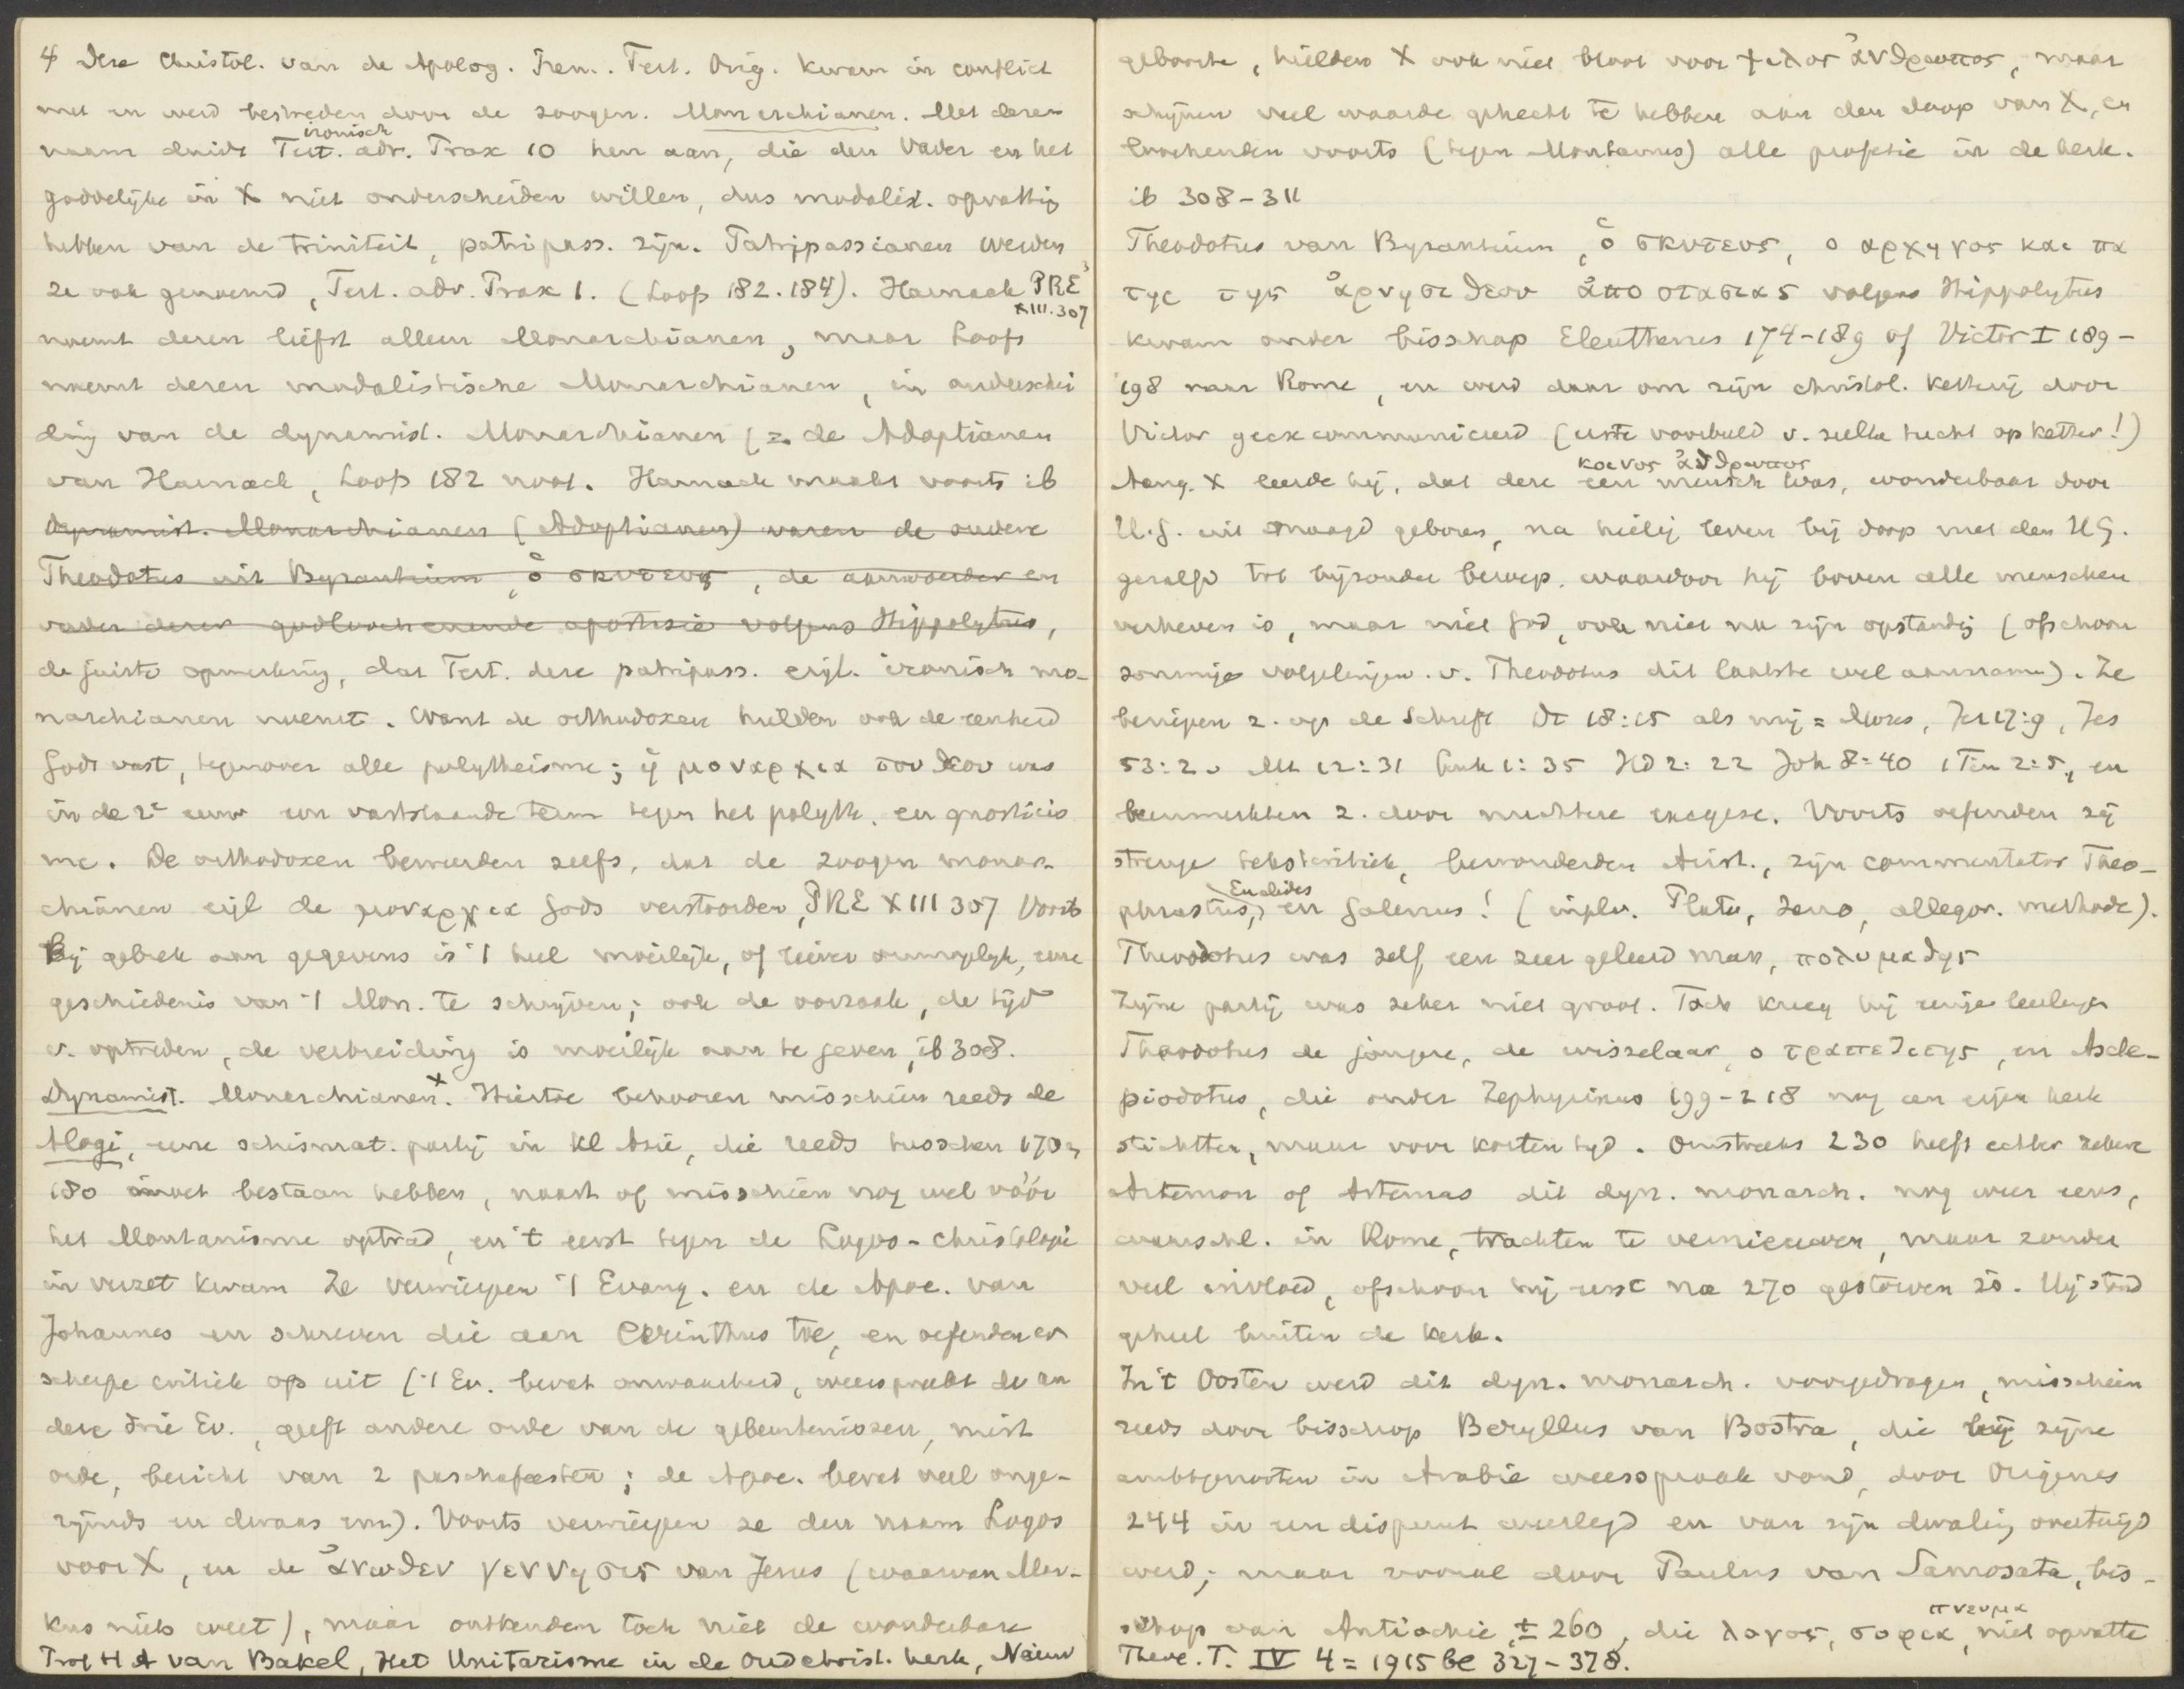 4 Deze Christol. van de Apolog. Iren. Tert. Orig. kwam in conflict
met en werd bestreden door de zoogen. Monarchianen. Met dezen
ironisch
naam duidt Tert. adv. Prax 10 hen aan, die den Vader en het
goddelijke in X niet onderscheiden willen, dus modalist. opvatting
hebben van de triniteit, patripass. zijn. Patripassianen werden
ze ook genoemd, Tert. adv. Prax 1. (Loofs 182. 184). Harnack PRE³
XIII. 307
noemt dezen liefst alleen Monarchianen, maar Loofs
noemt dezen modalistische Monarchianen, in onderschei
ding van de dynamist. Monarchianen (= de Adoptianen
van Harnack, Loofs 182 noot. Harnack maakt voorts ib
Dynamist. Monarchianen (Adoptianen) waren de oudere
Theodotus uit Byzantium, ὁ σκυτευς, de aanvoerder en
vader dezer godloochenende apostasie volgens Hippolytus,
de juiste opmerking, dat Tert. deze patripass. eigl. ironisch mo-
narchianen noemt. Want de orthodoxen hielden ook de eenheid
Gods vast, tegenover alle polytheisme; ἡ μοναρχια του θεου was
in de 2e eeuw een vaststaande term tegen het polyth. en gnosticis
me. De orthodoxen beweerden zelfs, dat de zoogen monar-
chianen eigl de μοναρχια Gods verstoorden, PRE XIII 307 Voorts
Bij gebrek aan gegevens is 't heel moeilijk, of liever onmogelijk, eene
geschiedenis van 't Mon. te schrijven; ook de oorzaak, de tijd
v. optreden, de verbreiding is moeilijk aan te geven, ib 308.
Dynamist. Monarchianen x. Hiertoe behooren misschien reeds de
Alogi, eene schismat. partij in Kl Azië, die reeds tusschen 170 en
180 moet bestaan hebben, naast of misschien nog wel vóór
het Montanisme optrad, en 't eerst tegen de Logos-christologie
in verzet kwam Ze verwierpen 't Evang. en de Apoc. van
Johannes en schreven die aan Cerinthus toe, en oefenden er
scherpe critiek op uit ('t Ev. bevat onwaarheid, weerspreekt de an
dere drie Ev., geeft andere orde van de gebeurtenissen, mist
orde, bericht van 2 paschafeesten; de Apoc. bevat veel onge-
rijmds en dwaas enz). Voorts verwierpen ze den naam Logos
voor X, en de ἀνωθεν γεννησις van Jezus (waarvan Mar-
kus niets weet), maar ontkenden toch niet de wonderbare
Prof H A van Bakel, Het Unitarisme in de Oudchrist. kerk, Nieuw
geboorte, hielden X ook niet bloot voor ψιλος ἀνθρωπος, maar
schijnen veel waarde gehecht te hebben aan den doop van X, en
loochenden voorts (tegen Montanus) alle profetie in de kerk.
ib 308-311
Theodotus van Byzantium, ὁ σκυτευς, ο αρχηγος και πα
τηρ της ἀρνησι θεου ἀποστασιας volgens Hippolytus
kwam onder bisschop Eleutherus 174-189 of Victor I 189-
198 naar Rome, en werd daar om zijn christol. ketterij door
Victor geexcommuniceerd (eerste voorbeeld v. zulke tucht op ketter!)
κοινος ἀνθρωπος
Aang. X leerde hij, dat deze een mensch was, wonderbaar door
H.G. uit maagd geboren, na heilig leven bij doop met den HG.
gezalfd tot bijzonder beroep, waardoor hij boven alle menschen
verheven is, maar niet God, ook niet na zijn opstanding (ofschoon
sommige volgelingen v. Theodotus dit laatste wel aannamen). Ze
beriepen z. op de Schrift Dt 18:15 als mij = Mozes, Jer 17:9, Jes
53:2v Mt 12:31 Luk 1:35 HD 2:22 Joh 8:40 1 Tim 2:5, en
kenmerkten z. door nuchtere exegese. Voorts oefenden zij
strenge tekstcritiek, bewonderden Arist., zijn commentator Theo-
Euclides
phrastus, en Galenus! (inplv. Plato, Zeno, allegor. methode).
Theodotus was zelf een zeer geleerd man, πολυμαθης
Zijne partij was zeker niet groot. Toch kreeg hij eenige leerlingen
Theodotus de jongere, de wisselaar, ο τραπεζιτης, en Ascle-
piodotus, die onder Zephyrinus 199-218 nog een eigen kerk
stichtten, maar voor korten tijd. Omstreeks 230 heeft echter zekere
Artemon of Artemas dit dyn. monarch. nog weer eens,
waarschl. in Rome, trachten te vernieuwen, maar zonder
veel invloed, ofschoon hij eerst na 270 gestorven is. Hij stond
geheel buiten de kerk.
In 't Oosten werd dit dyn. monarch. voorgedragen, misschien
reeds door bisschop Beryllus van Bostra, die bij zijne
ambtgenooten in Arabië weerspraak vond, door Origenes
244 in een dispuut weerlegd en van zijn dwaling overtuigd
werd; maar vooral door Paulus van Samosata, bis-
πνευμα
schop van Antiochie, ± 260, die λογος, σοφια, niet opvatte
Theol. T. IV 4 = 1915 bl 327-328.